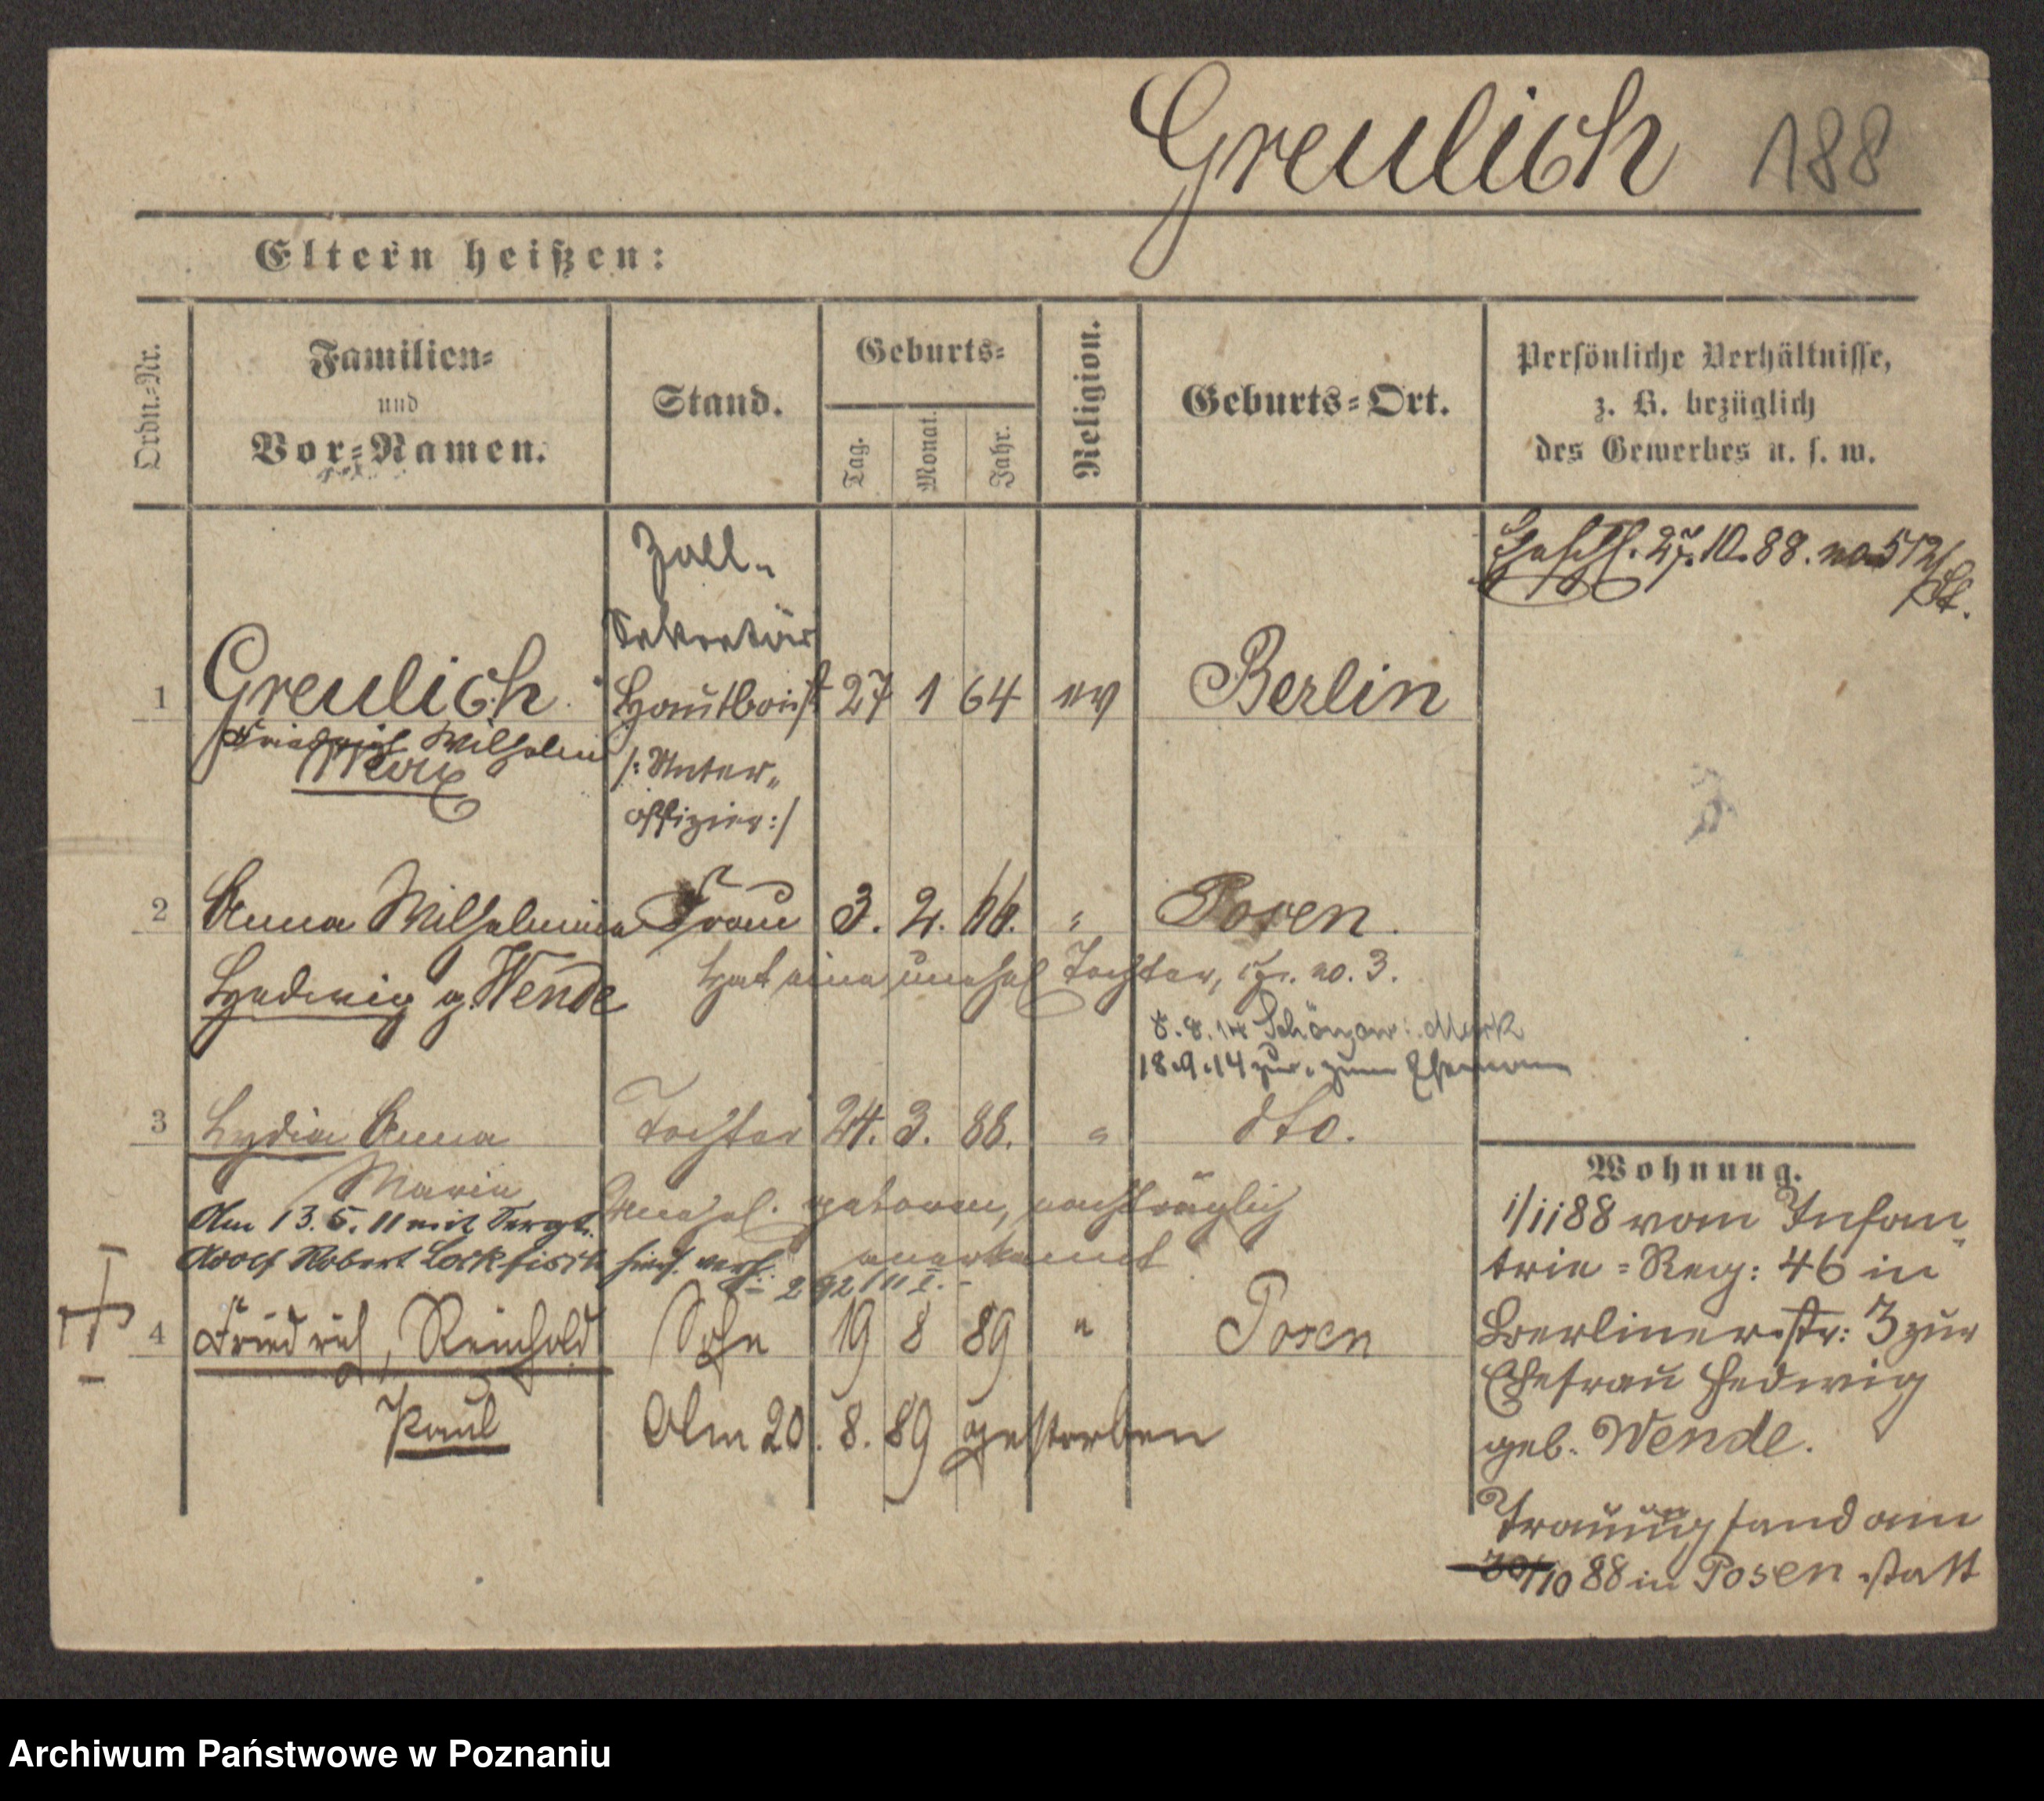 Greulich 188
Eltern heißen:
Ordn.-Nr.
Familien=
und
Vor=Namen.
Stand.
Geburts=
Tag.
Monat.
Jahr.
Religion.
Geburts=Ort.
Persönliche Verhältnisse,
z. B. bezüglich
des Gewerbes u. s. w.
27.10.88. no 512
Zoll-
Sekretär
1 Greulich Hautboist 27 1 64 ev Berlin
Friedrich Wilhelm
Max
/: Unter-
offizier :/
2 Anna Wilhelmine Frau 3. 2. 66. " Posen.
Hedwig g. Wende
Hat eine unehel Tochter, no. 3.
8.8.14 Mark
18.9.14 zur. zum Ehemann
3 Lydia Anna Tochter 24. 3. 88. " dto.
Marie
Unehel. geboren, nachträglich
anerkannt
Am 13.5.11 mit Sergt.
Adolf Robert hier verh.
292/11 I.
4 Friedrich, Reinhold Sohn 19 8 89 " Posen
Paul
Am 20. 8. 89 gestorben
Wohnung.
1/11 88 vom Infan-
trie=Reg: 46 in
Berliner-str: 3 zur
Ehefrau Hedwig
geb. Wende.
Trauung fand am
/10 88 in Posen statt
Archiwum Państwowe w Poznaniu